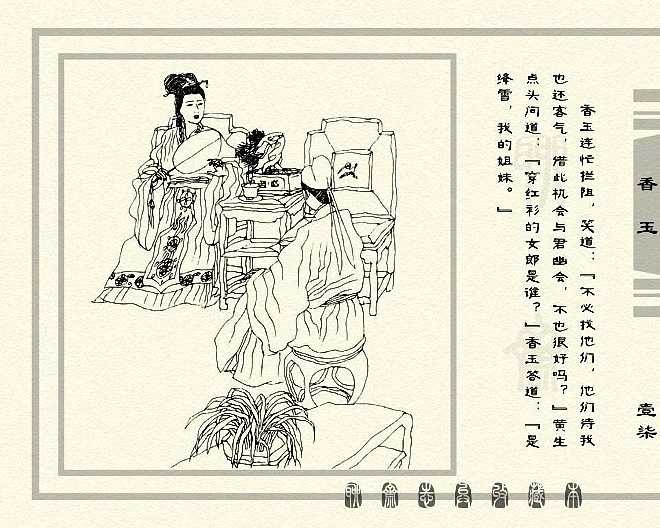 香玉连忙拦阻，笑道：『不必找他们，他们待我
也还客气，借此机会与君幽会，不也很好吗？』黄生
点头问道：『穿红衫的女郎是谁？』香玉答道：『是
绛雪，我的姐妹。』
香玉
壹柒
聊斋志异收藏本